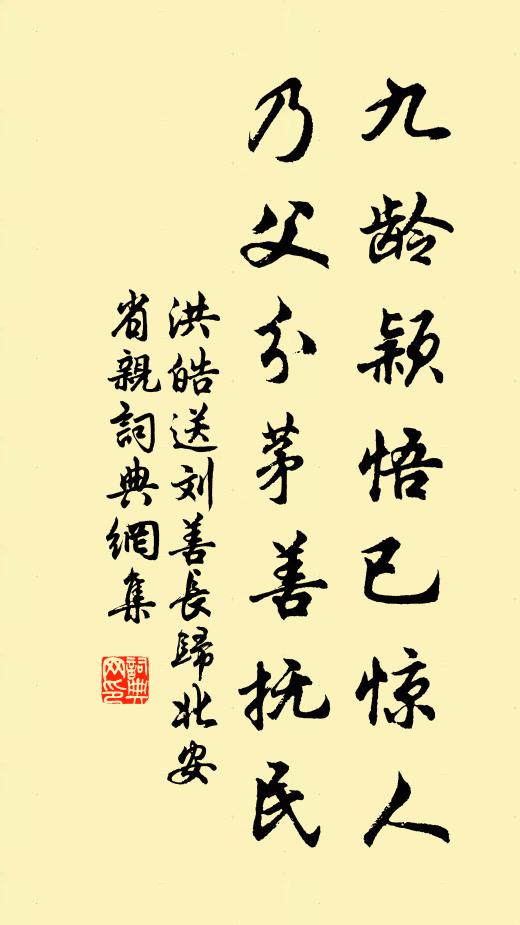 九龄颖悟已惊人
乃父分茅善抚民
洪皓送刘善長歸北安
省親詞典網集
詞典
网印